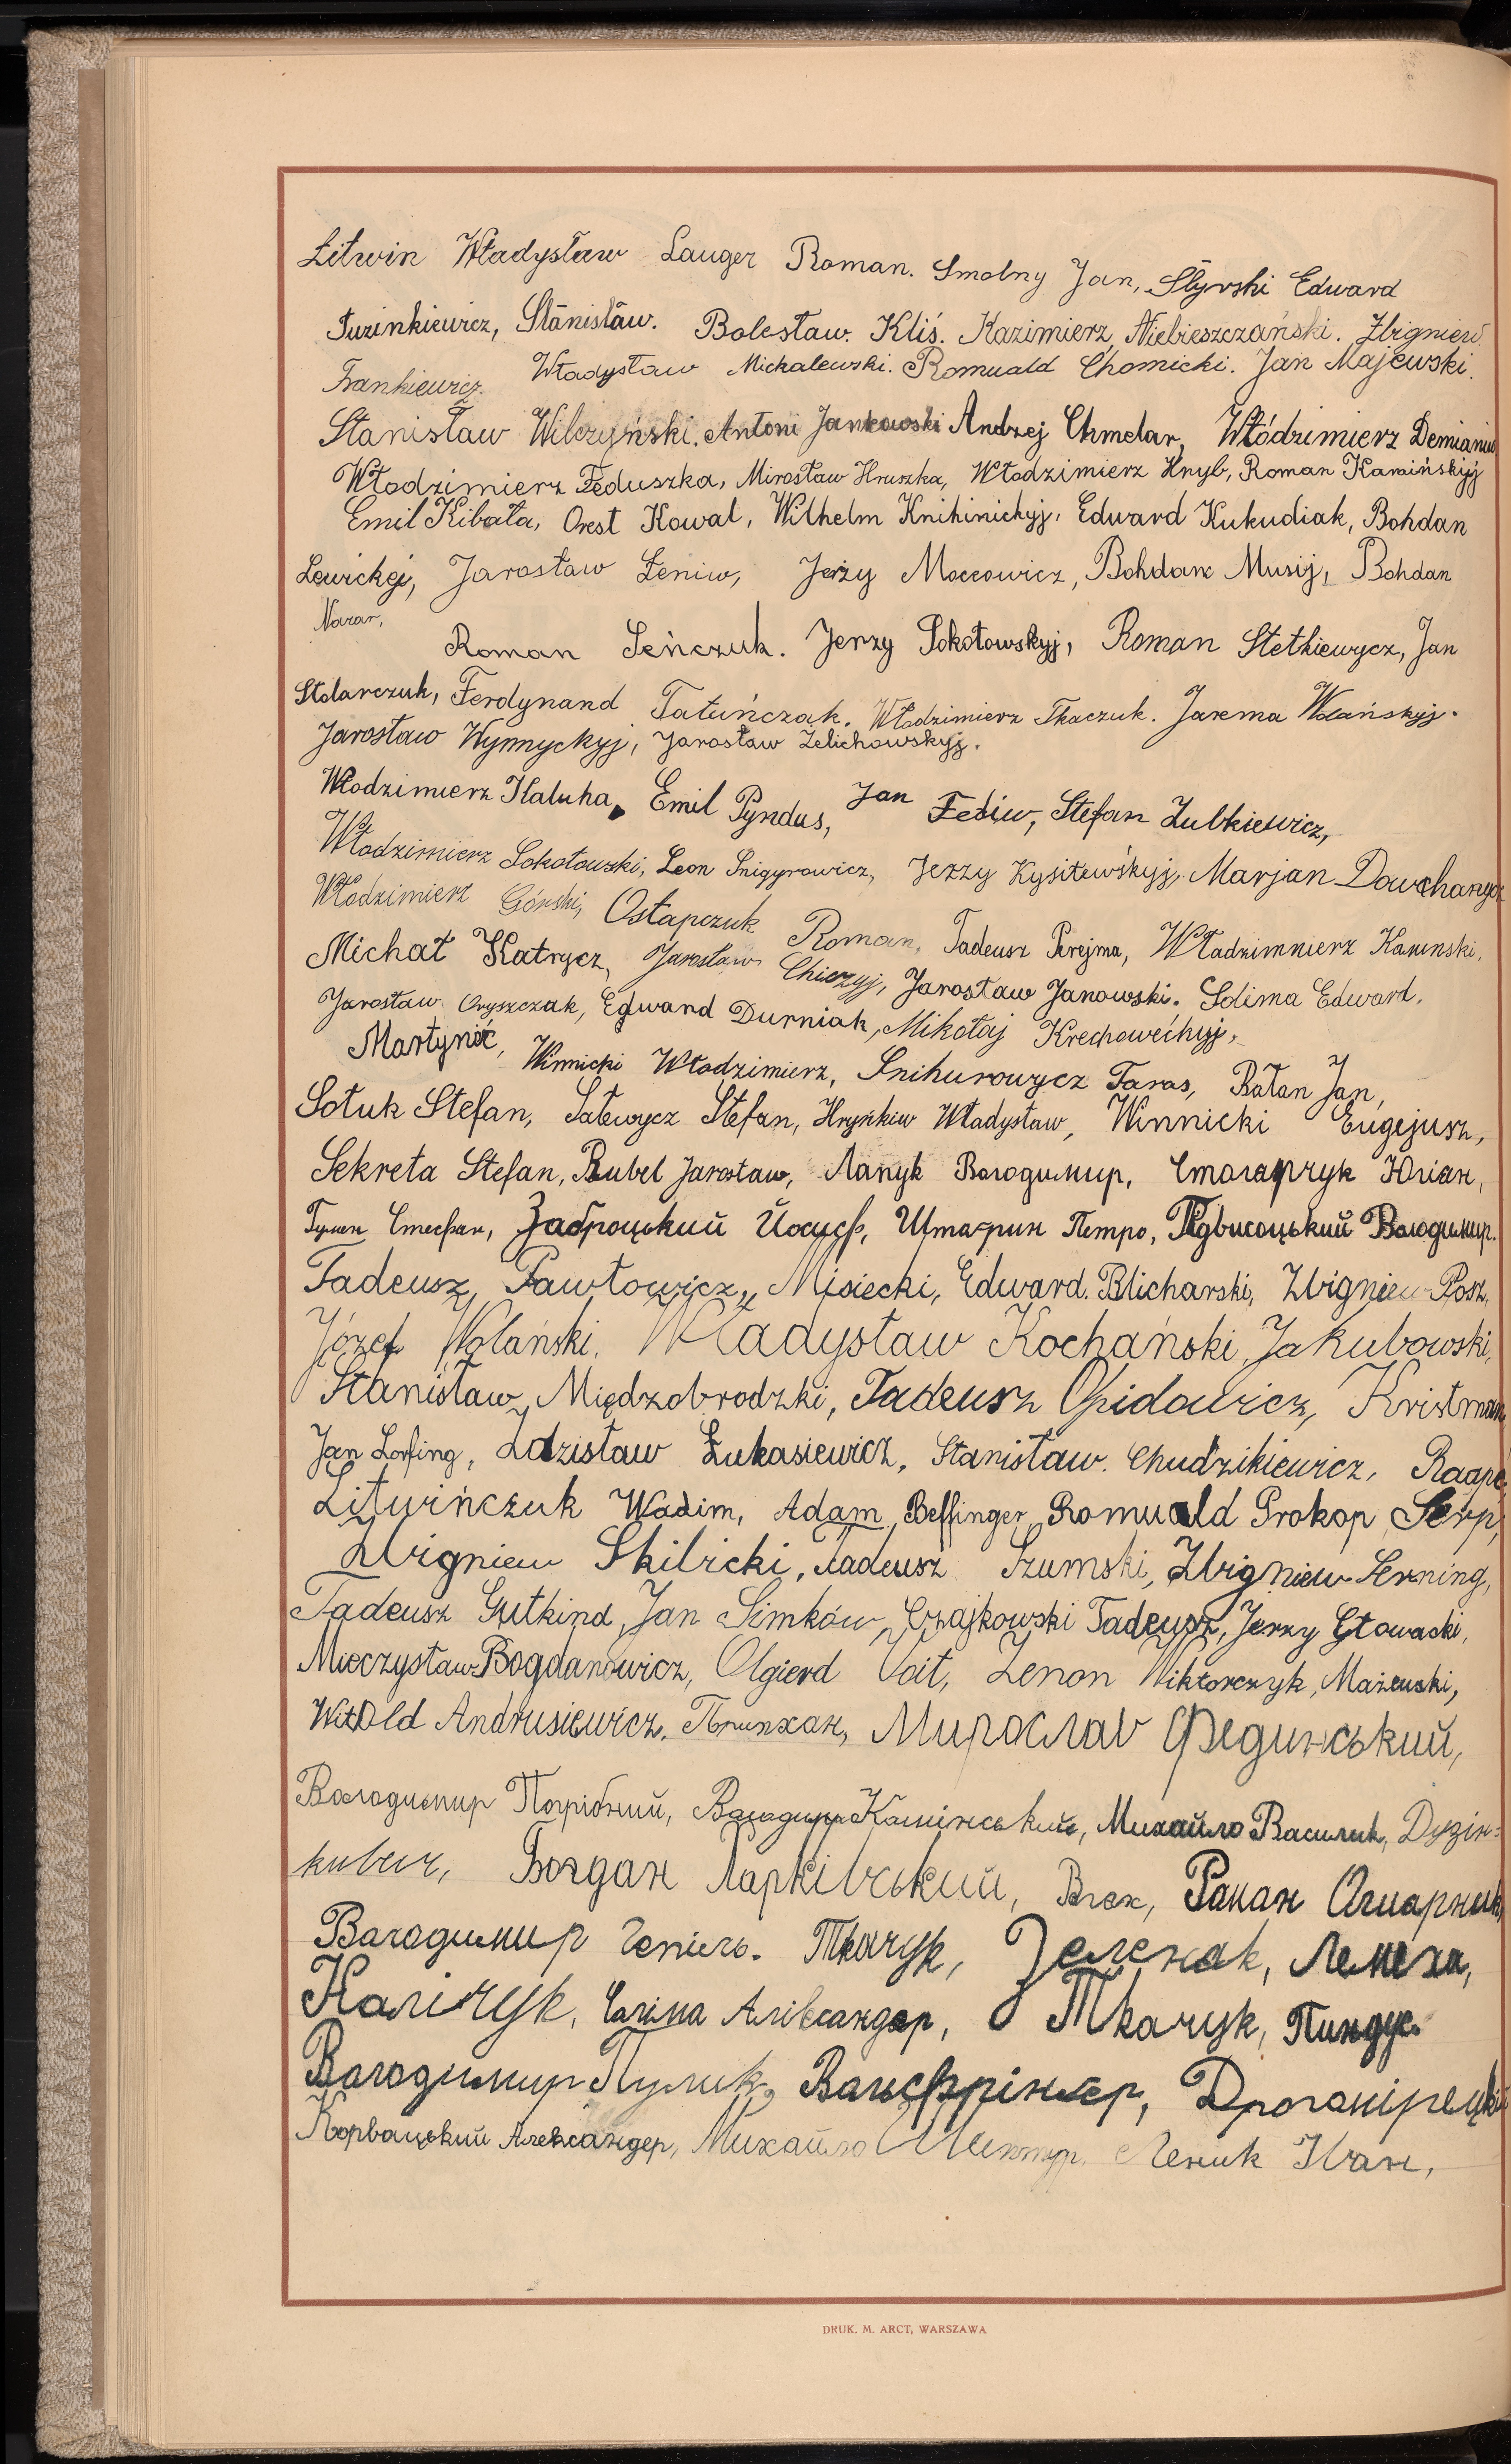 Litwin Władysław Lauger Roman. Smolny Jan, Styrski Edward
Juzinkiewicz, Stanisław. Bolesław. Kliś. Kazimierz Niebieszczański. Zbigniew
Frankiewicz. Władysław Michalewski. Romuald Chomicki. Jan Majewski.
Stanisław Wilczyński. Antoni Jankowski Andrzej Chmelar, Włódzimierz Demianiw
Włodzimierz Feduszka, Mirosław Hruszka, Włodzimierz Hryb, Roman Kamińskyj
Emil Kibała, Orest Kowal, Wilhelm Knihinickyj, Edward Kukudiak, Bohdan
Lewickyj, Jarosław Łeniw, Jerzy Moccowicz, Bohdan Musij, Bohdan
Nazar,
Roman Seńczuk. Jerzy Sokołowskyj, Roman Stetkiewycz, Jan
Stolarczuk, Ferdynand Tatuńczak. Włodzimierz Tkaczuk. Jarema Wolańskyj.
Jarosław Wynnyckyj, Jarosław Żelichowskyj.
Włodzimierz Kaluha, Emil Pyndus, Jan Fediw, Stefan Zubkiewicz,
Włodzimierz Sokołowski, Leon Śnigyrowicz, Jerzy Kysiłewśkyj, Marjan Dowchanycz
Włodzimierz Górski, Ostapczuk Roman, Tadeusz Perejma, Władzimnierz Kamnski,
Michał Katrycz, Jarosław Chiczyj, Jarosław Janowski. Solima Edward,
Jarosław Oryszczak, Edward Durniak, Mikołaj Krechowećkyj,
Martynéć, Winnicki Włodzimierz, Snihurowycz Taras, Bałan Jan,
Sołuk Stefan, Sałewycz Stefan, Hryńkiw Władysław, Winnicki Eugejusz,
Sekreta Stefan, Bubel Jarosław, Лапук Володимир, Столарчук Юліан,
Гулен Стефан, Заброцький Йосиф, Штагрин Петро, Підвисоцький Володимир.
Tadeusz Pawłowicz, Misiecki, Edward. Blicharski, Zbigniew Posz,
Józef Wolański, Władysław Kochański, Jakubowski,
Stanisław Międzobrodzki, Tadeusz Opidowicz, Kristman
Jan Lorfing, Zdzisław Łukasiewicz, Stanisław. Chudzikiewicz, Raape,
Litwińczuk Wadim, Adam Beffinger, Romuald Prokop Serp,
Zbigniew Skibicki, Tadeusz Szumski, Zbigniew Serning,
Tadeusz Gutkind, Jan Simków, Czajkowski Tadeusz, Jerzy Głowacki,
Mieczysław Bogdanowicz, Olgierd Voit, Zenon Wiktorczyk, Mażewski,
Witold Andrusiewicz, Мирослав Фединський,
Володимир Погрібний, Володимир Камінський, Михайло Василик, Дузін-
кевич, Богдан Ларківський, Влох, Роман Огиарник,
Володимир Чепіль. Ткачук, Зеленак, Лемеха,
Калічук, Саліма Алівсандер, Ткачук, Пиндус.
Володимир Пулик, Вальфрінгер, Дрогомірецький
Корвацький Александер, Михайло Леник Іван,
DRUK. M. ARCT, WARSZAWA